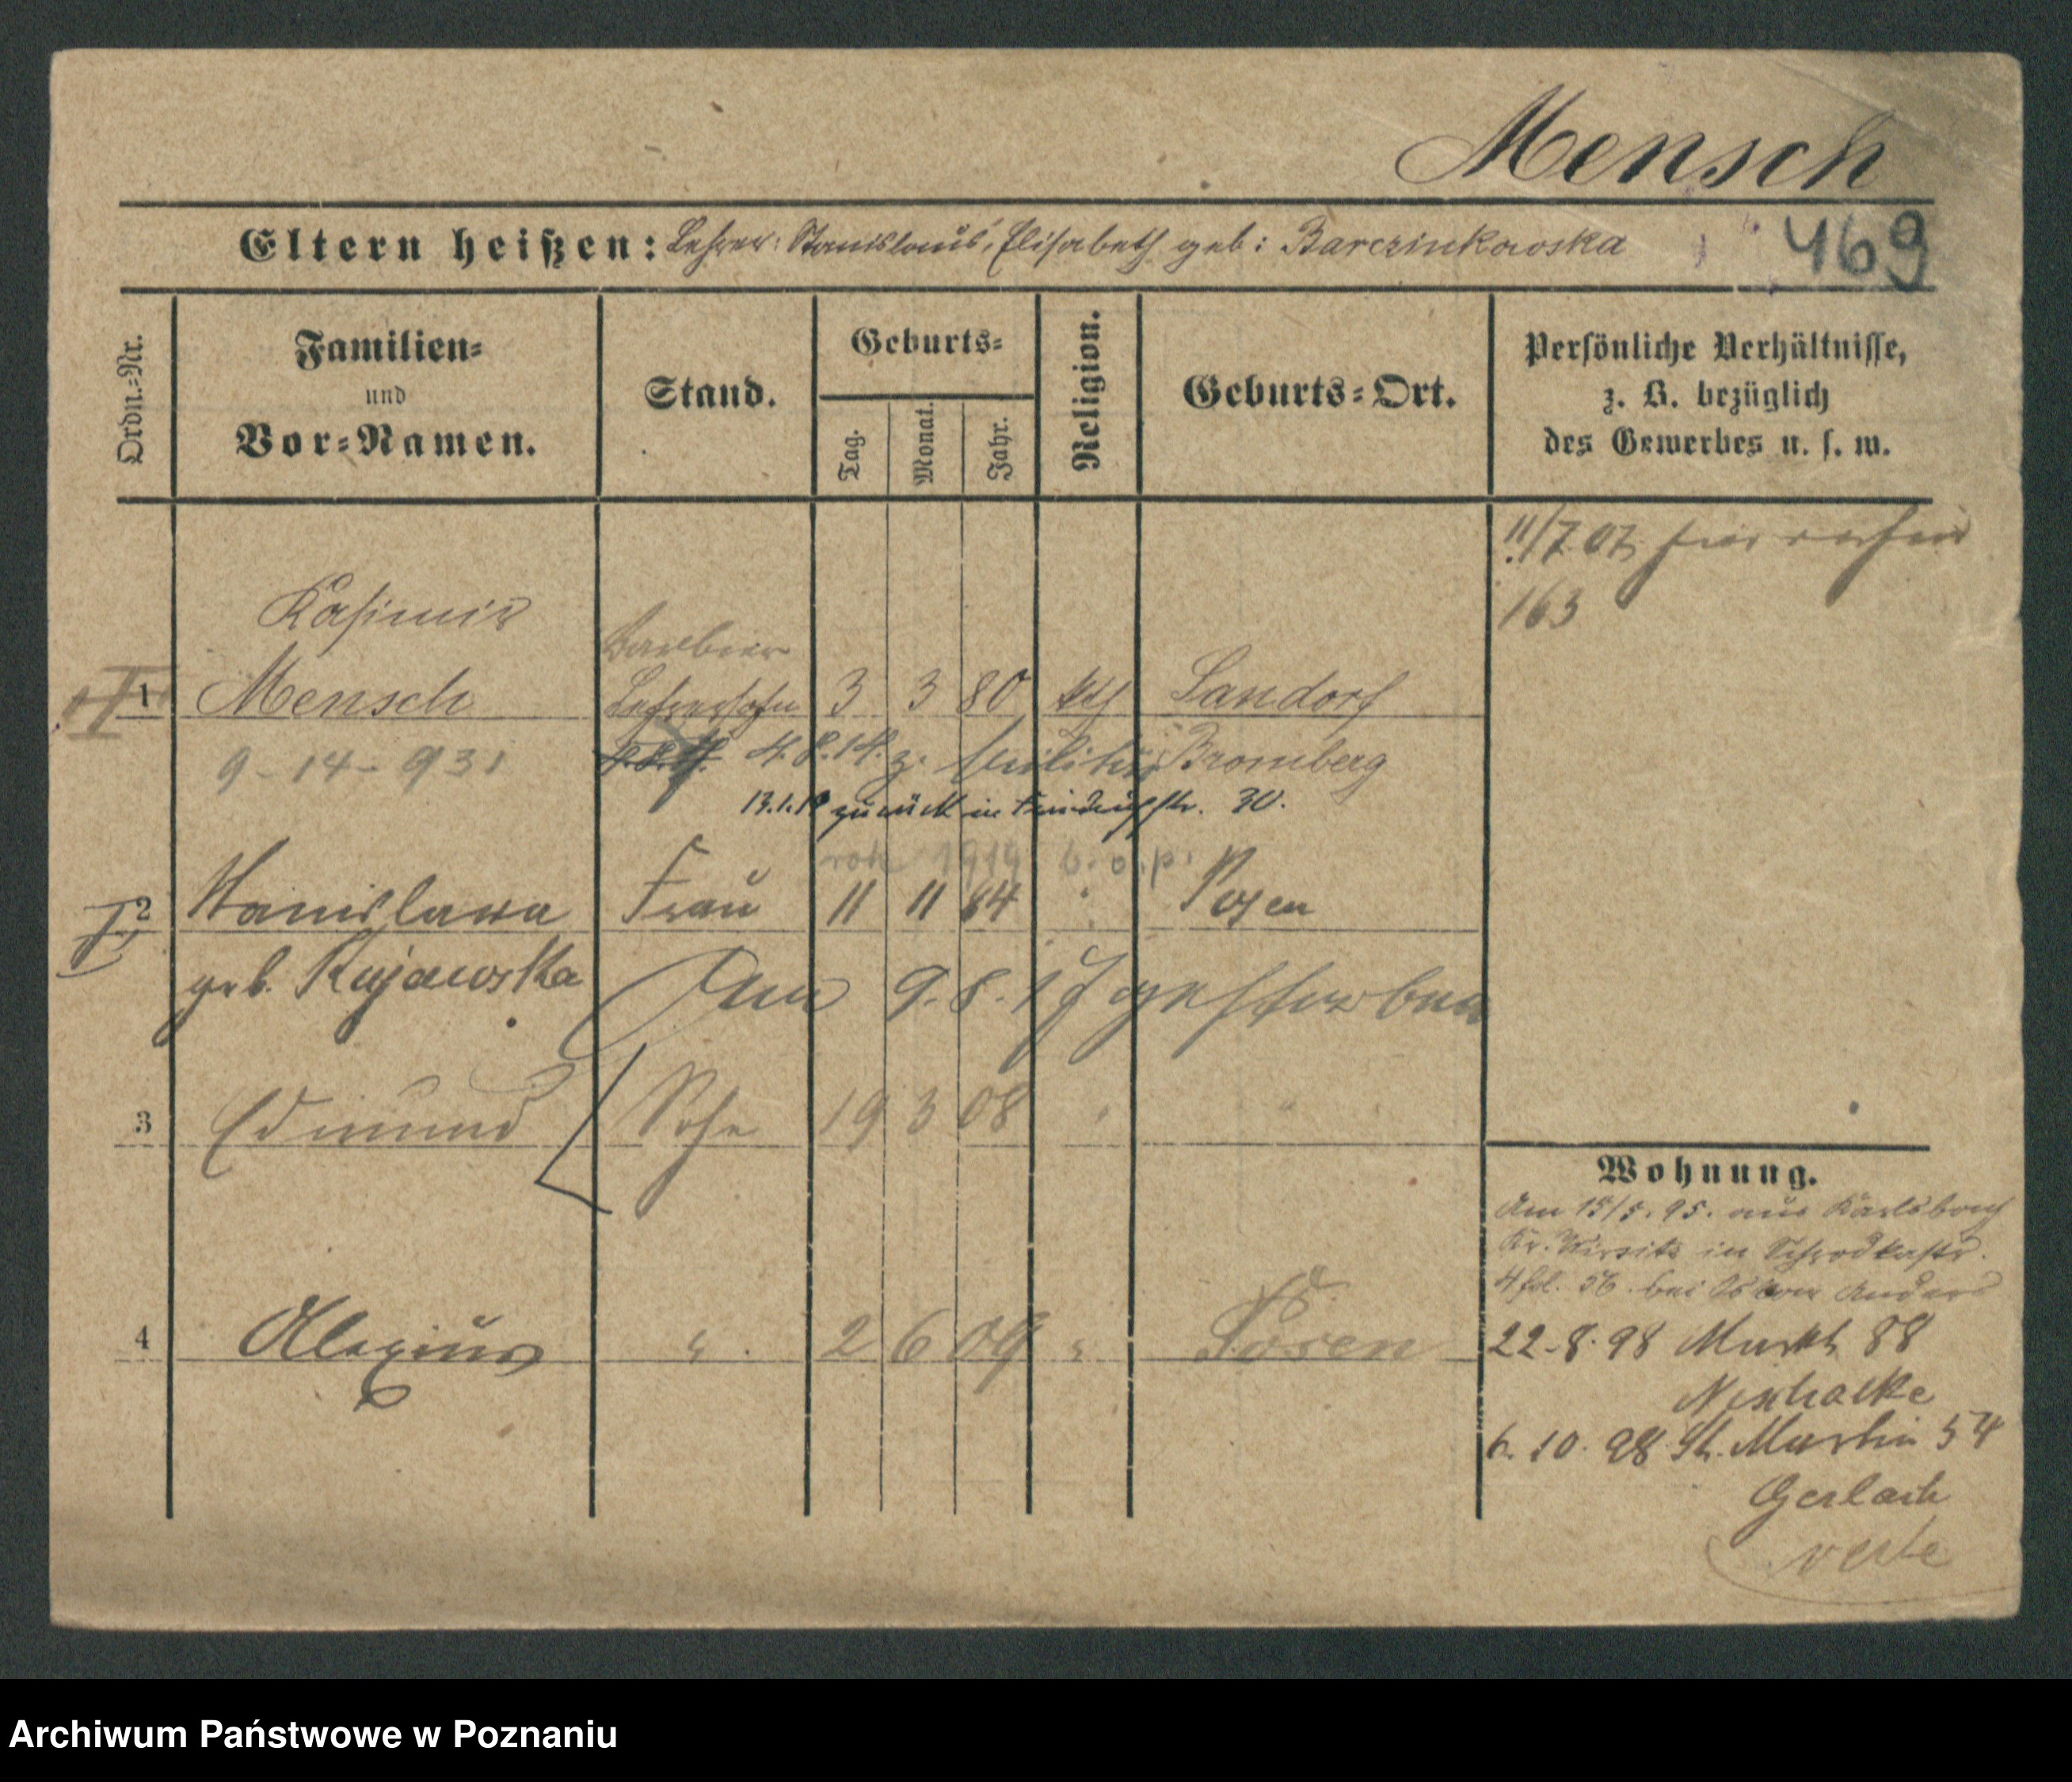 Mensch
Eltern heißen: Lehrer: Stanislaus, Elisabeth geb: Barczinkowska
469
Ordn.=Nr.
Familien=
und
Vor=Namen.
Stand.
Geburts=
Tag.
Monat.
Jahr.
Religion.
Geburts=Ort.
Persönliche Verhältnisse,
z. B. bezüglich
des Gewerbes u. s. w.
11/7 07
163
Kasimir
Barbier
1 Mensch Lehrersohn 3 3 80 kth Sandorf
9-14-931 4.8.14. z. Militär Bromberg
13.1.19 zurück in Friedrichstr. 30.
rok 1919 b.o.p.
2 Stanislawa Frau 11 11 84 " Posen
geb. Kujawska Am 9.8.17 gestorben
3 Edmund Sohn 19 3 08 " "
4 Alexius " 2 6 09 " Posen
Wohnung.
Am 15/5.95. aus Karlsbach
Kr. Wirsitz in Schrodkastr.
4 fol. 56. bei Anders
22.8.98 Markt 88
6.10.98 St. Martin 54
Gerlach
verte
Archiwum Państwowe w Poznaniu